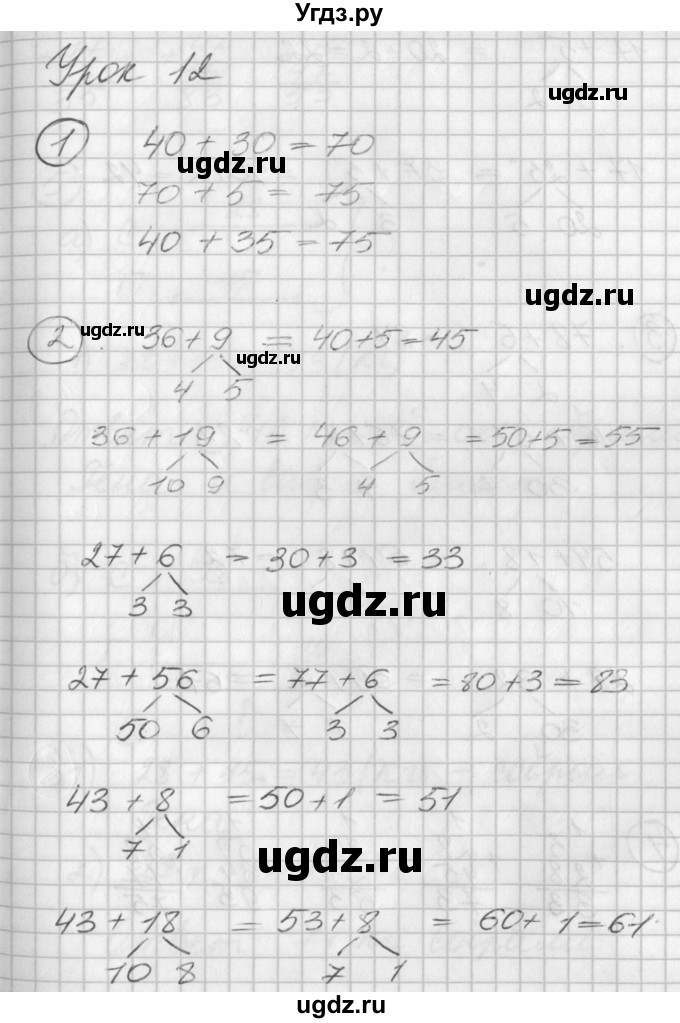 Угдз.ру
Урок 12
ugdz.ru
1 40 + 30 = 70
ugdz.ru
70 + 5 = 75
40 + 35 = 75
ugdz.ru
2 ugdz.ru 36 + 9 = 40 + 5 = 45
ugdz.ru
4 5
36 + 19 = 46 + 9 = 50 + 5 = 55
10 9 4 5
27 + 6 = 30 + 3 = 33
3 3
ugdz.ru
27 + 56 = 77 + 6 = 80 + 3 = 83
50 6 3 3
43 + 8 = 50 + 1 = 51
7 1
ugdz.ru
43 + 18 = 53 + 8 = 60 + 1 = 61
10 8 7 1
ugdz.ru